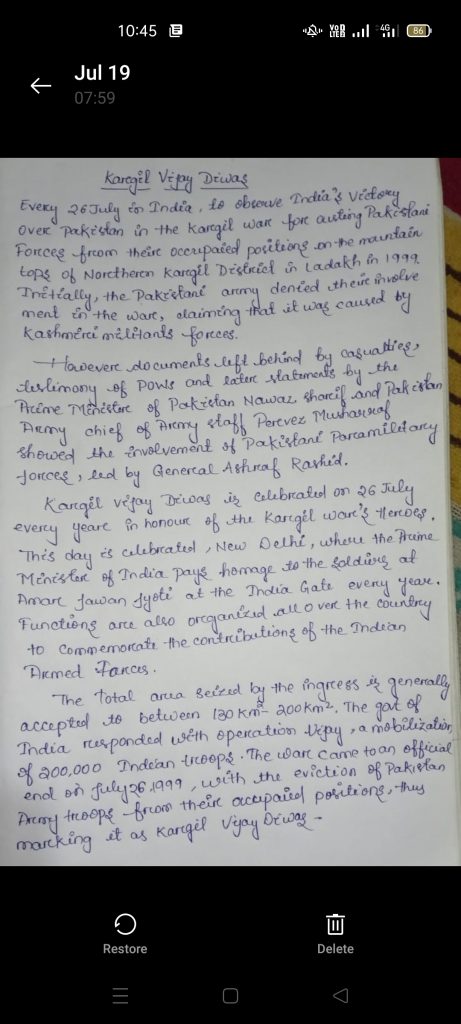 10:45
VoD
LTE2
4G
86
Jul 19
07:59
Karegil Vijay Diwas
Every 26 July in India, to observe India's Victory
over Pakistan in the Kargil war for austing Pakistani
Forces from their occupaied positions on the mountain
tops of Northeren Kargil District in Ladakh in 1999
Initially, the Pakistani army denied their involve
ment in the war, claiming that it was caused by
Kashmiri militants forces.
However documents left behind by casualties,
testimony of POWs and later statements by the
Prime Minister of Pakistan Nawaz sharif and Pakistan
Army chief of Army staff Pervez Musharraf
showed the involvement of Pakistani Paramilitary
forces, led by General Ashraf Rashid.
Kargil vijay Diwas is celebrated on 26 July
every year in honour of the Kargil war's Heroes.
This day is celebrated, New Delhi, where the Prime
Minister of India pays homage to the soldiers at
Amar Jawan Jyoti at the India Gate every year.
Functions are also organized all over the country
to commemorate the contributions of the Indian
Armed Forces.
The Total area seized by the ingress is generally
accepted to between 130 km²- 200km². The govt of
India responded with operation Vijay, a mobilization
of 200,000 Indian troops. The war came to an official
end on July 26, 1999, with the eviction of Pakistan
Army troops from their occupaied positions, thus
marking it as Kargil Vijay Diwas -
Restore
Delete